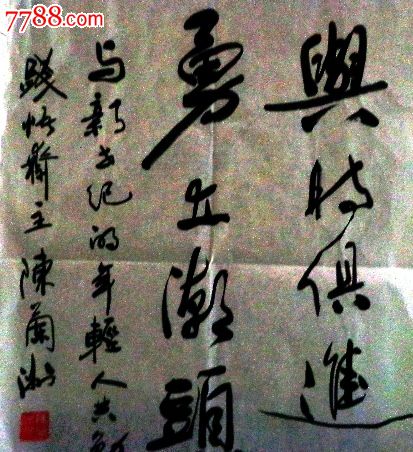 7788.com
與時俱進
勇立潮頭
与新世纪的年輕人共
主陳蘭